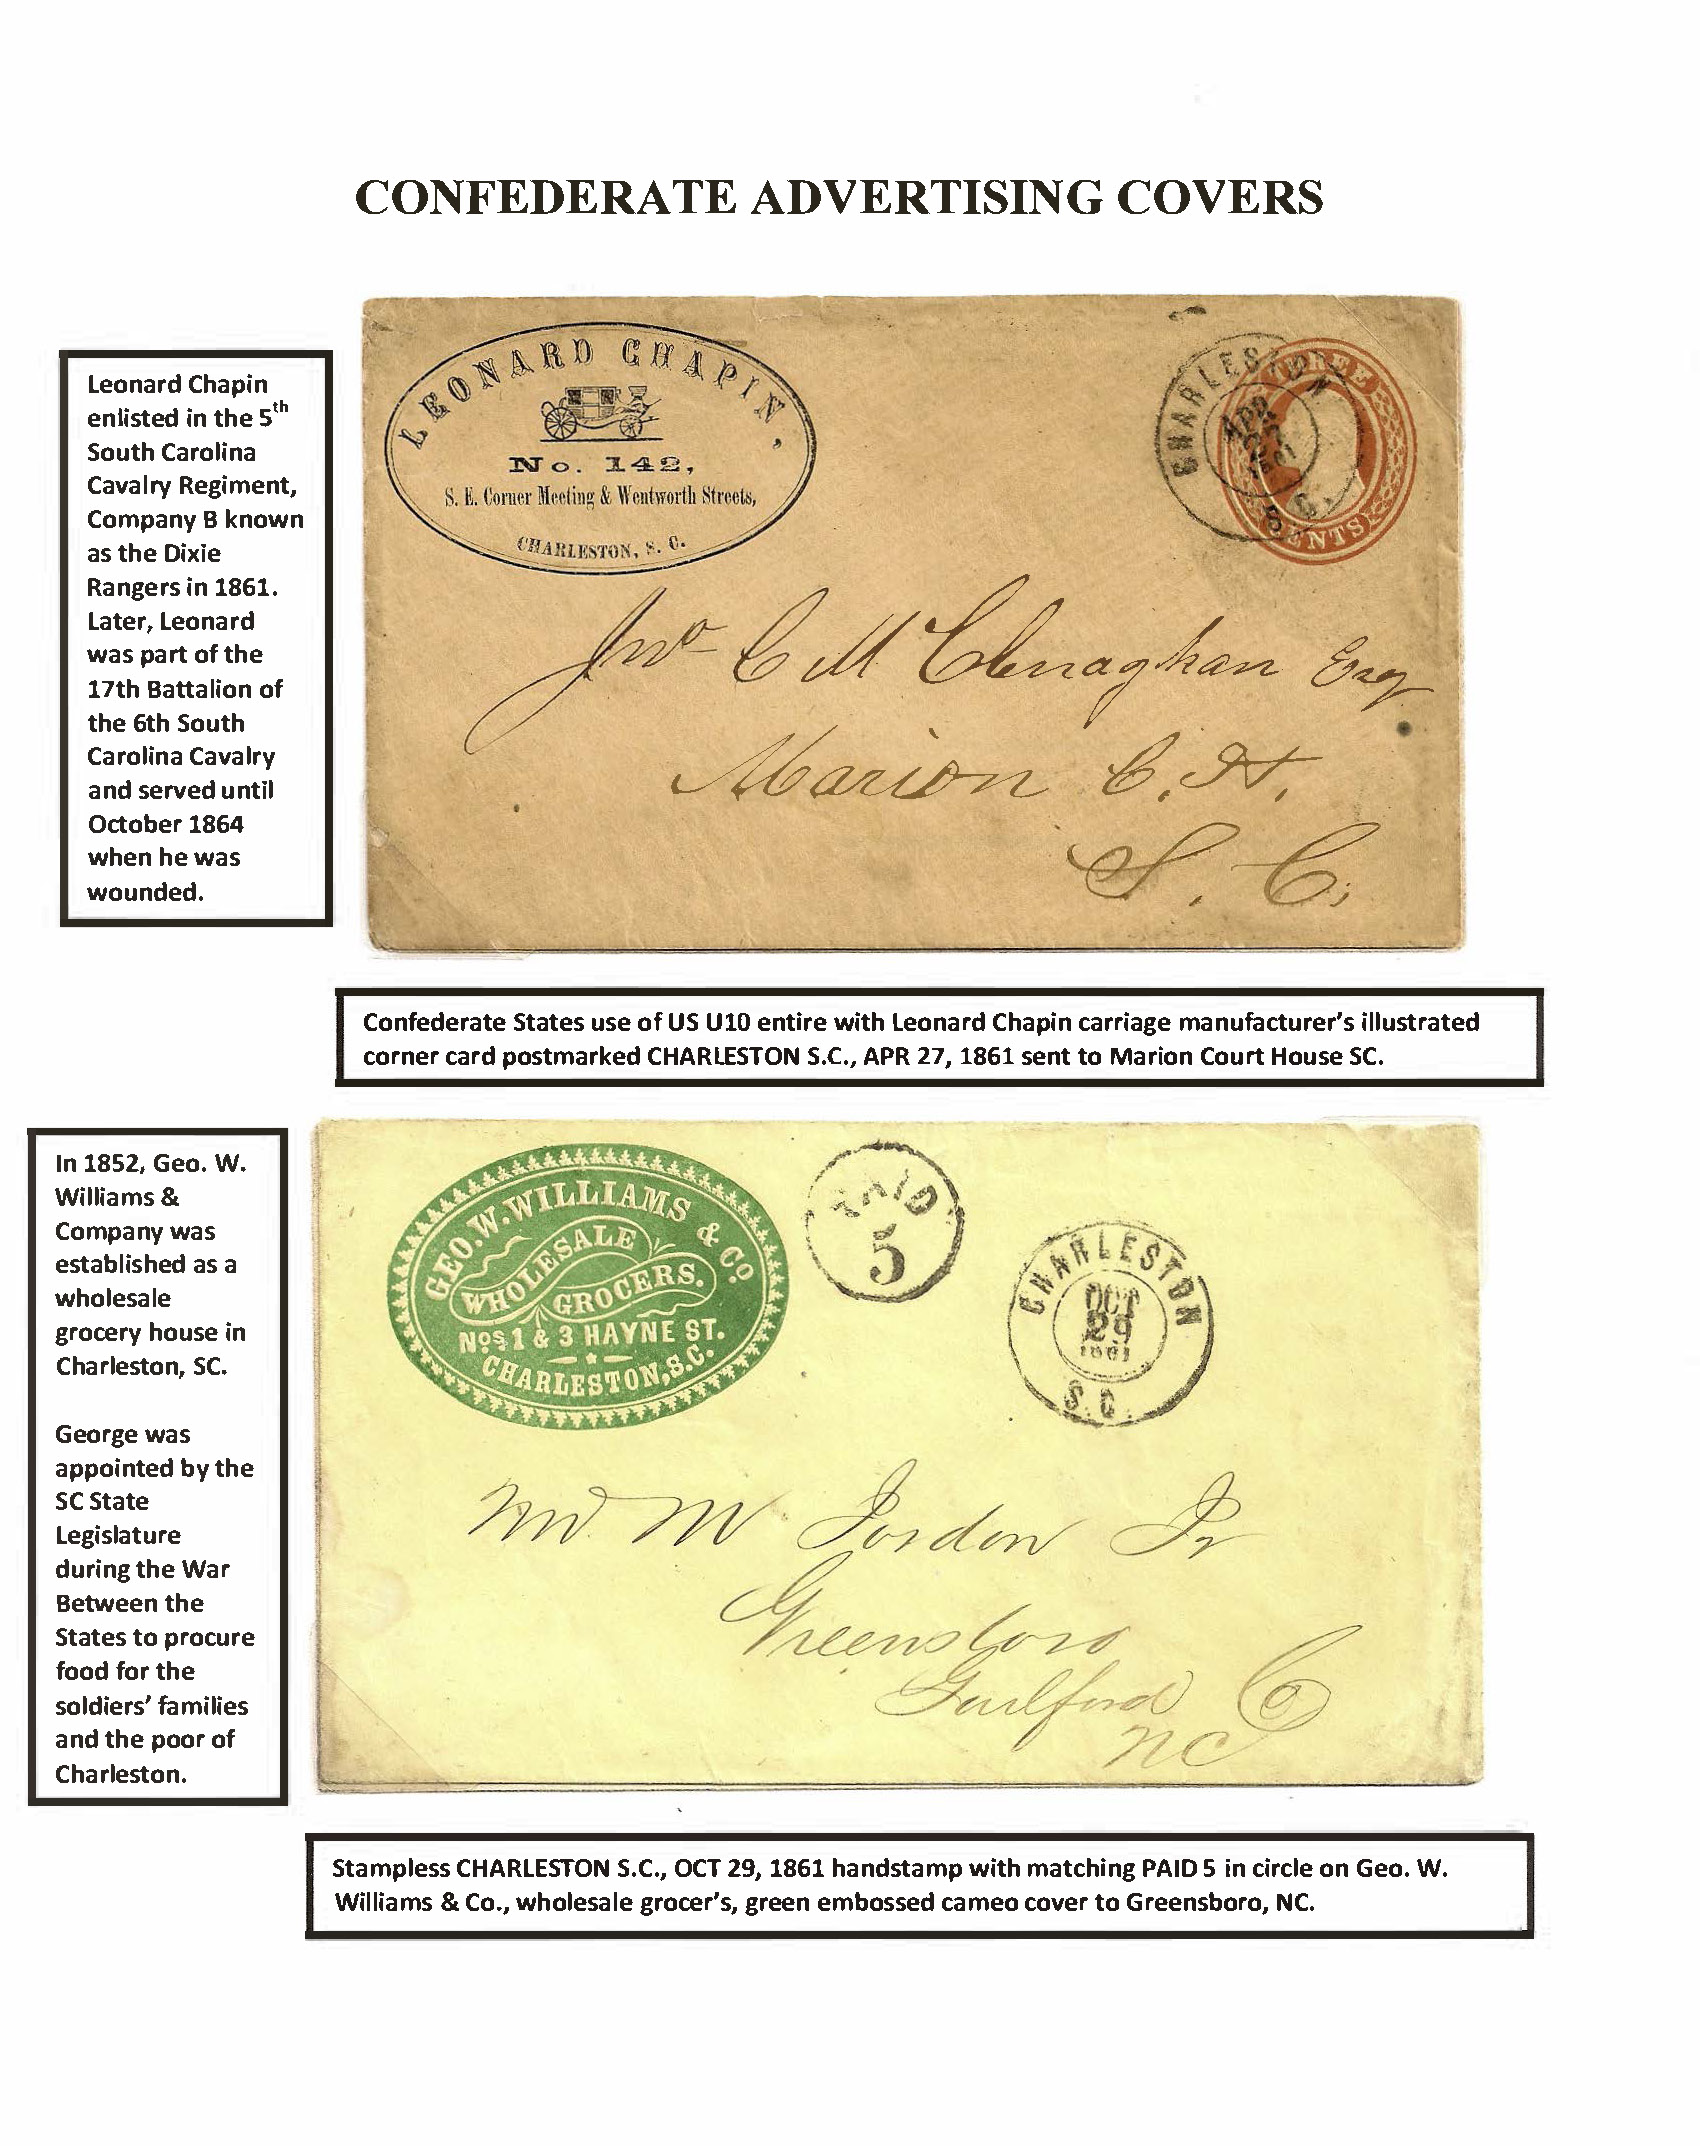 CONFEDERATE ADVERTISING COVERS
Leonard Chapin
enlisted in the 5th
South Carolina
Cavalry Regiment,
Company B known
as the Dixie
Rangers in 1861.
Later, Leonard
was part of the
17th Battalion of
the 6th South
Carolina Cavalry
and served until
October 1864
when he was
wounded.
LEONARD CHAPIN,
No. 142,
S. E. Corner Meeting & Wentworth Streets,
CHARLESTON, S. C.
CHARLESTON
APR
27
1861
S. C.
THREE
CENTS
Jno C McClenaghan Esq
Marion C. H.
S. C.
Confederate States use of US U10 entire with Leonard Chapin carriage manufacturer's illustrated
corner card postmarked CHARLESTON S.C., APR 27, 1861 sent to Marion Court House SC.
In 1852, Geo. W.
Williams &
Company was
established as a
wholesale
grocery house in
Charleston, SC.
George was
appointed by the
SC State
Legislature
during the War
Between the
States to procure
food for the
soldiers' families
and the poor of
Charleston.
GEO. W. WILLIAMS & CO.
WHOLESALE
GROCERS.
Nos 1 & 3 HAYNE ST.
CHARLESTON, S.C.
PAID
5
CHARLESTON
OCT
29
1861
S. C.
M Jordon Jr
Greensboro
Guilford Co
NC
Stampless CHARLESTON S.C., OCT 29, 1861 handstamp with matching PAID 5 in circle on Geo. W.
Williams & Co., wholesale grocer's, green embossed cameo cover to Greensboro, NC.